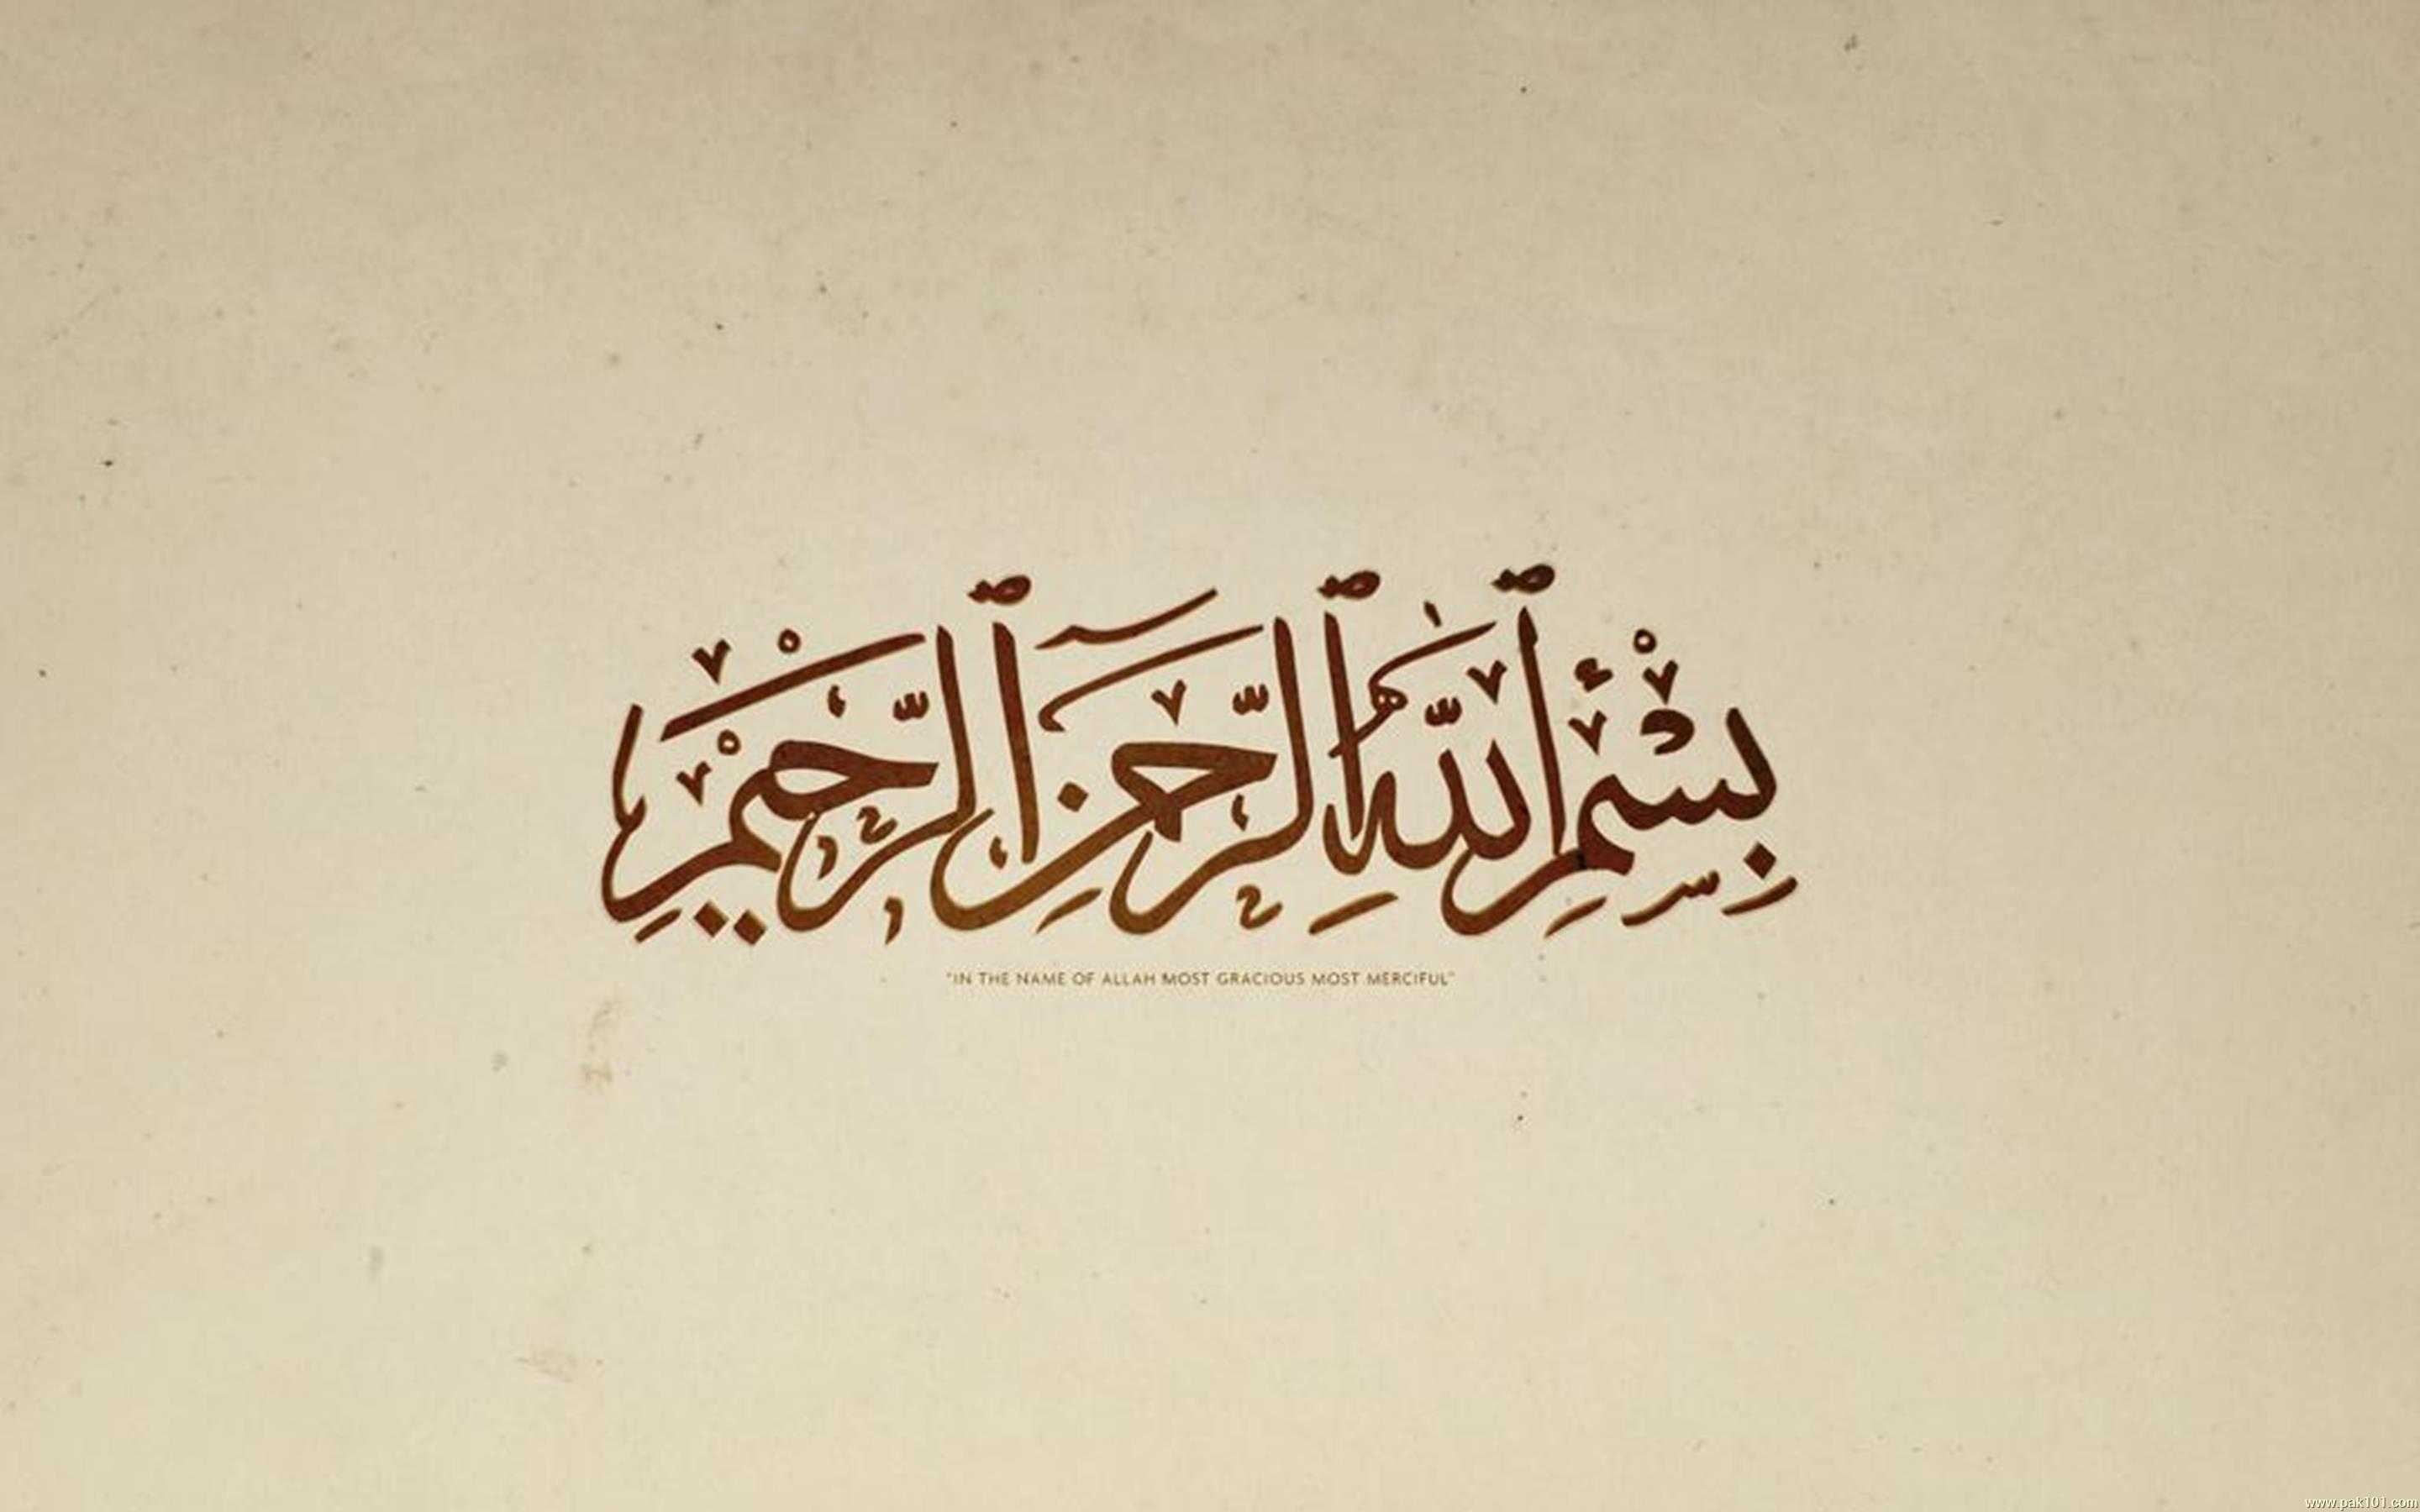 بِسْمِ ٱللَّهِ ٱلرَّحْمَٰنِ ٱلرَّحِيمِ
"IN THE NAME OF ALLAH MOST GRACIOUS MOST MERCIFUL"
www.pak101.com